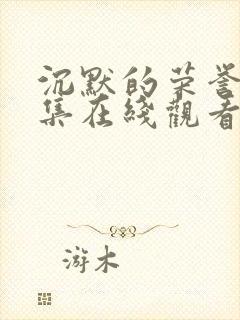 沉默的荣誉
集在綫觀看
游木